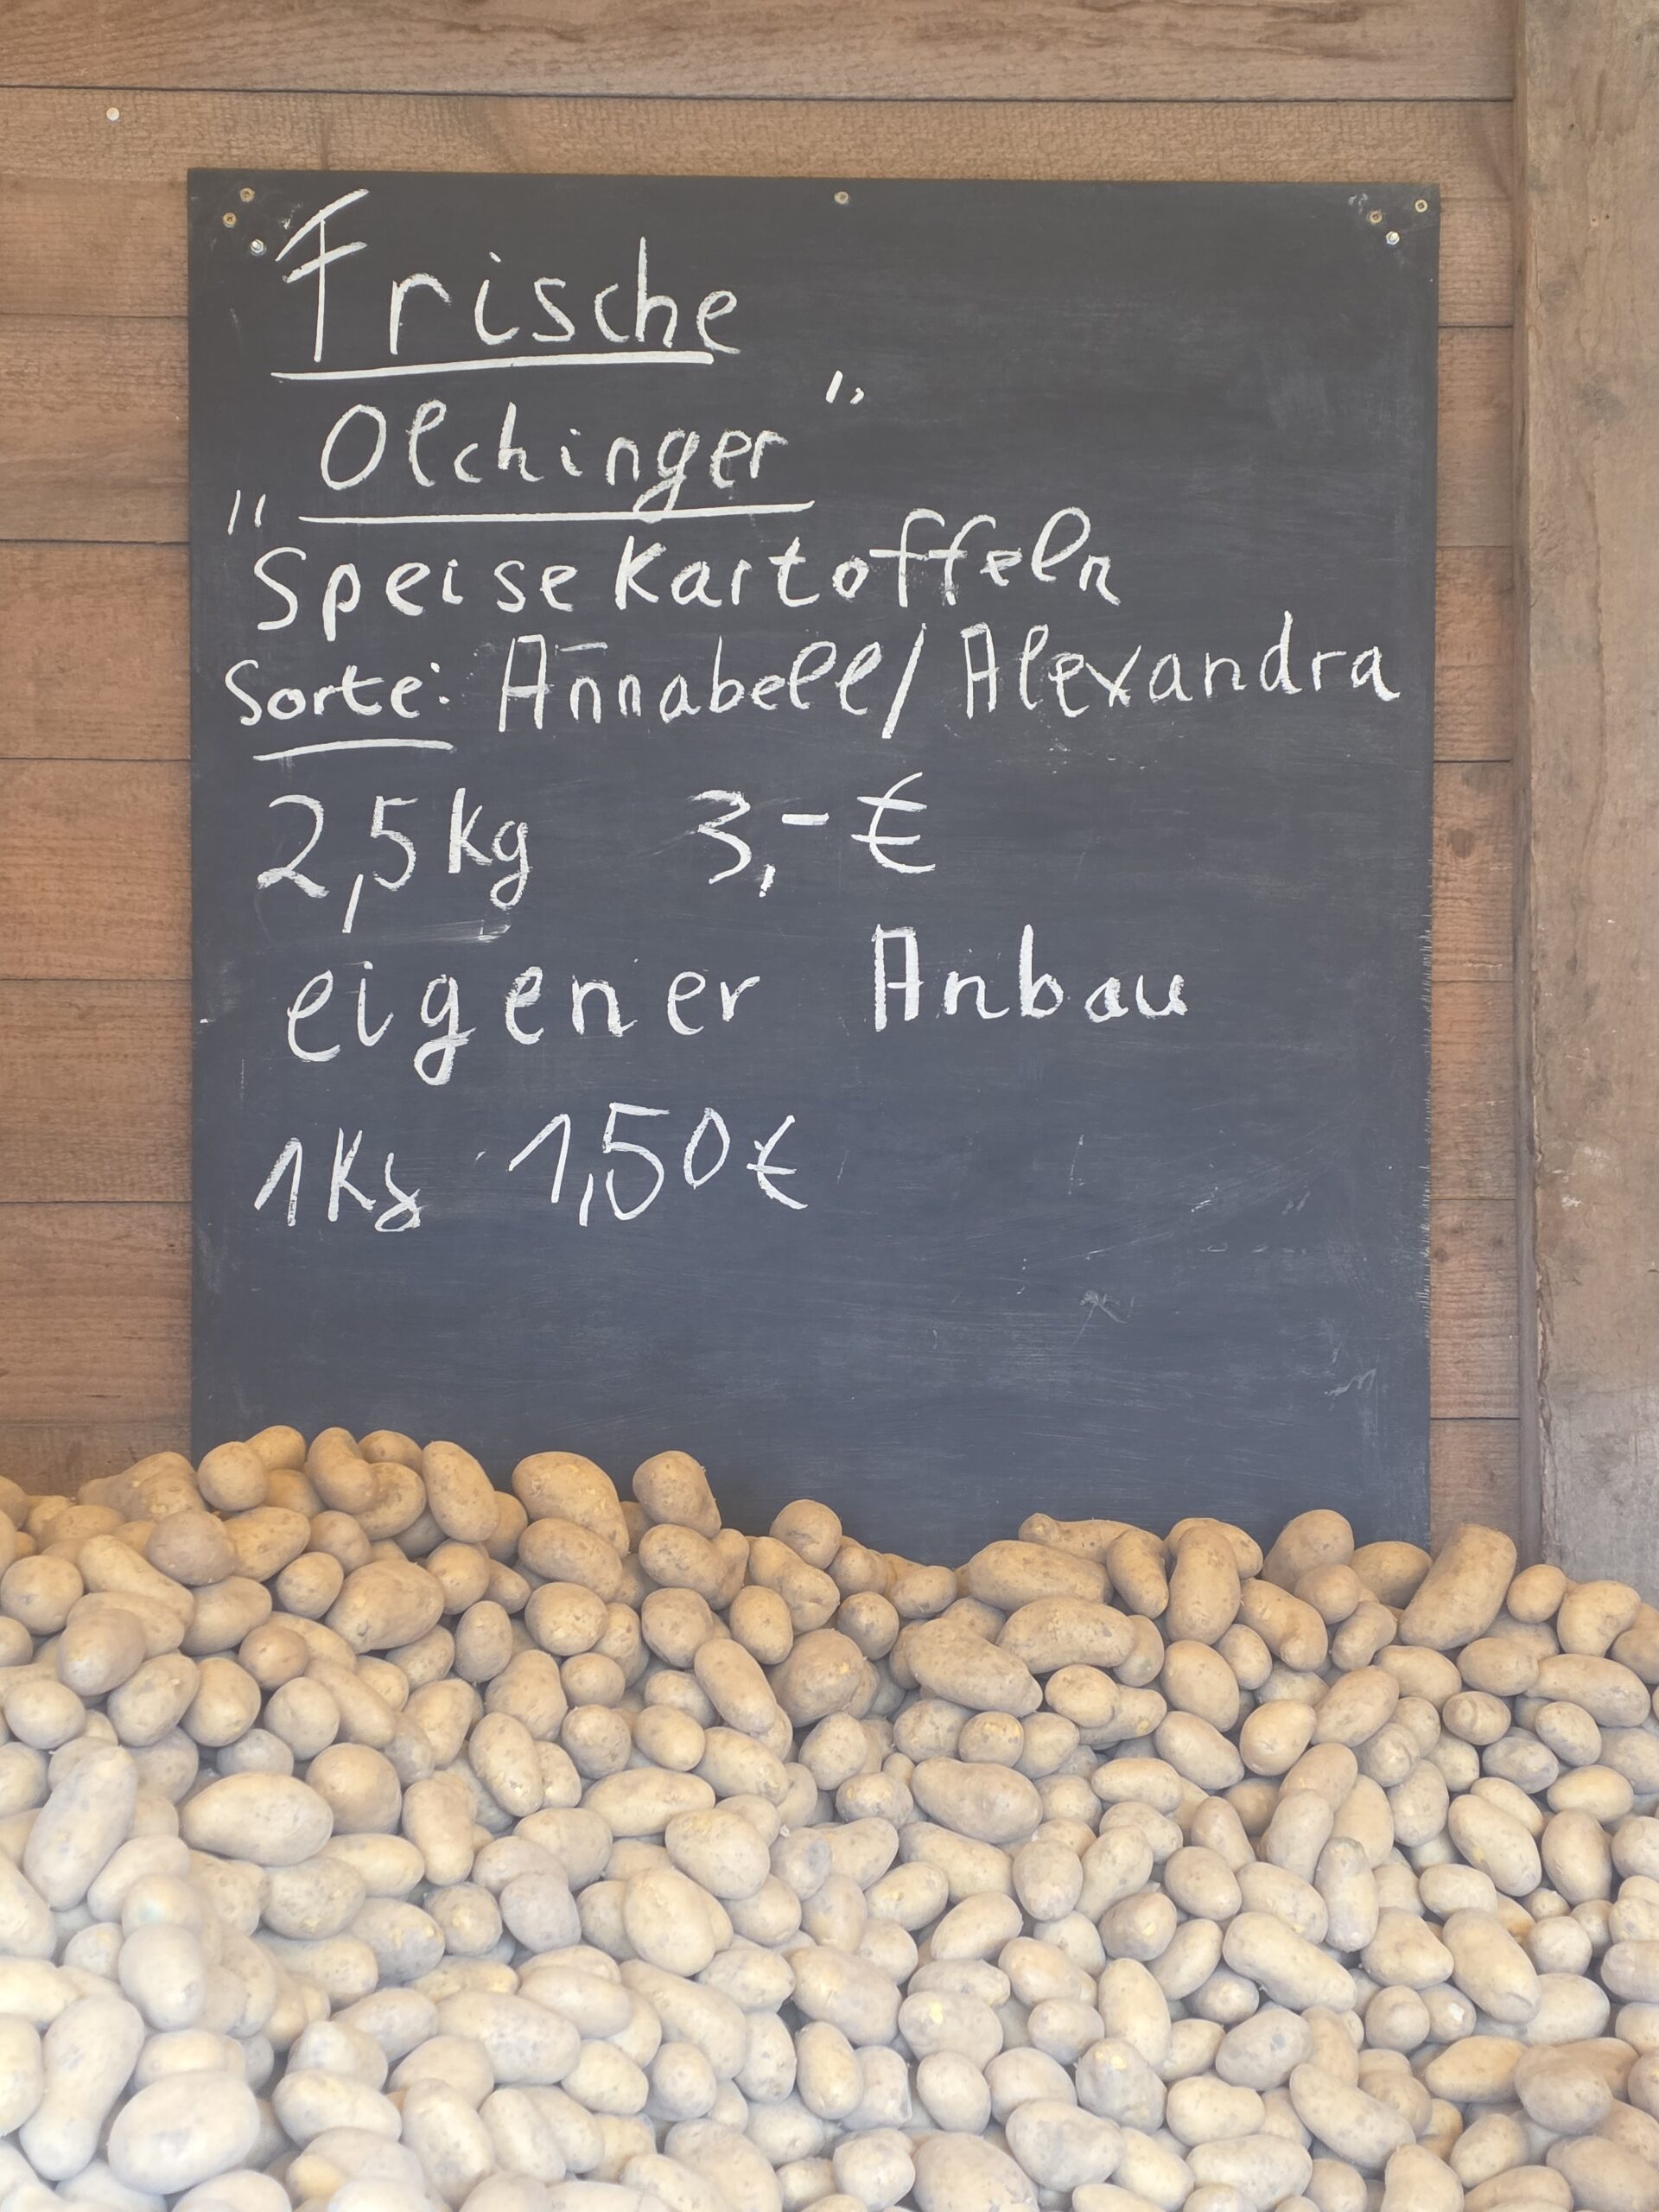 Frische
Olchinger"
„Speisekartoffeln
Sorte: Annabell/Alexandra
2,5kg 3,-€
eigener Anbau
1Kg 1,50€